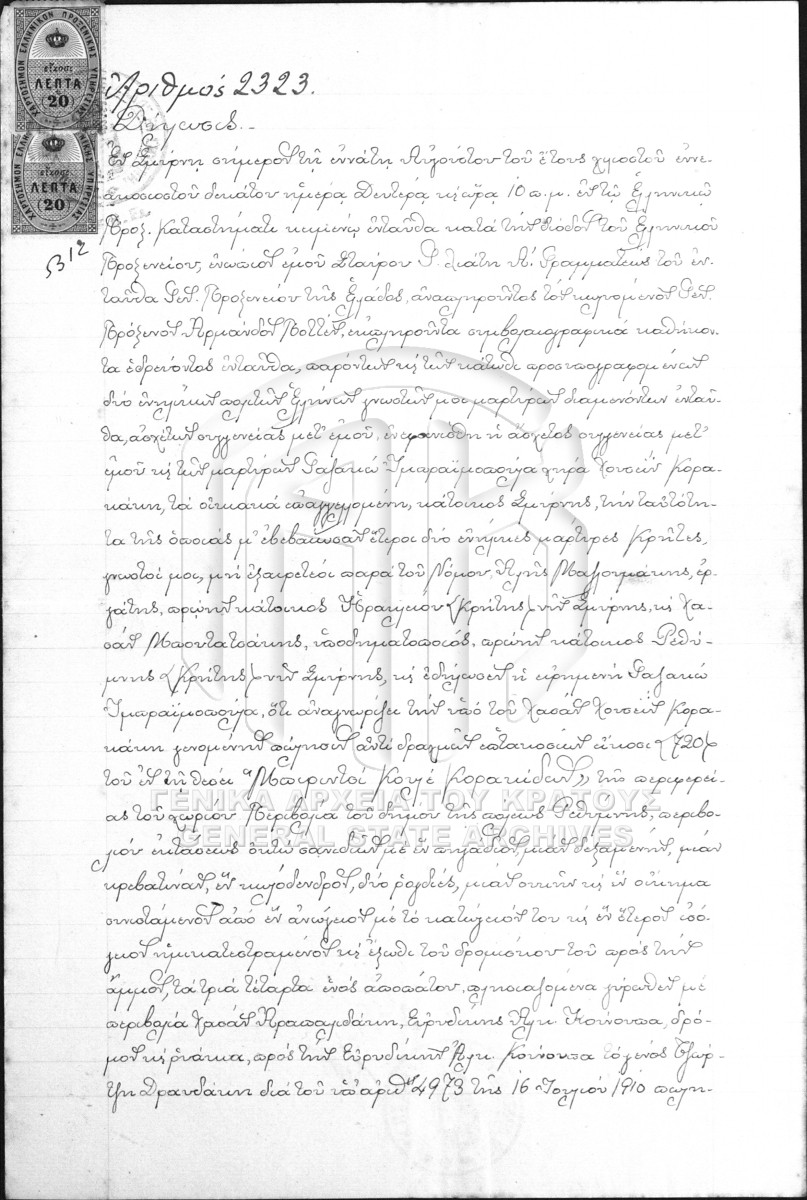 ΧΑΡΤΟΣΗΜΟΝ ΕΛΛΗΝΙΚΗΣ ΠΡΟΞΕΝΙΚΗΣ ΥΠΗΡΕΣΙΑΣ
εἴκοσι
ΛΕΠΤΑ
20
εἴκοσι
ΛΕΠΤΑ
20
Ἀριθμός 2323.
Δήλωσις.
Ἐν Σμύρνῃ σήμερον τῇ ἐννάτῃ Αὐγούστου τοῦ ἔτους χιλιοστοῦ ἐννε-
ακοσιοστοῦ δεκάτου ἡμέρᾳ Δευτέρᾳ κ ὥρᾳ 10 π.μ. ἐν τῷ Ἑλληνικῷ
Προξ. Καταστήματι κειμένῳ ἐνταῦθα κατὰ τὴν ὁδὸν τοῦ Ἑλληνικοῦ
Προξενείου, ἐνώπιον ἐμοῦ Σταύρου Γ. Λιάτη Α΄. Γραμματέως τοῦ ἐν-
ταῦθα Γεν. Προξενείου τῆς Ἑλλάδος, ἀναπληροῦντος τὸν κωλυόμενον Γεν.
Πρόξενον Ἀρμάνδον Ποττέν, ἐκπληροῦντα συμβολαιογραφικὰ καθήκον-
τα ἑδρεύοντος ἐνταῦθα, παρόντων κ τῶν κάτωθι προσυπογραφομένων
δύο ἐνηλίκων πολιτῶν Ἑλλήνων γνωστῶν μοι μαρτύρων διαμενόντων ἐνταῦ-
θα, ἀσχέτων συγγενείας μετ' ἐμοῦ, ἐνεφανίσθη ἡ ἄσχετος συγγενείας μετ'
ἐμοῦ κ τῶν μαρτύρων Γαζακὼ Ἰμπραΐμοπούλα χήρα Χουσεΐν Κορα-
κάκη, τὰ οἰκιακὰ ἐπαγγελομένη, κάτοικος Σμύρνης, τὴν ταὐτότη-
τα τῆς ὁποίας μ' ἐβεβαίωσαν ἕτεροι δύο ἐνήλικες μάρτυρες Κρῆτες,
γνωστοί μοι, μὴ ἐξαιρετέοι παρὰ τοῦ Νόμου, Ἀλῆς Μαζλουμάκης, ἐρ-
γάτης, πρῴην κάτοικος Ἡρακλείου (Κρήτης) νῦν Σμύρνης, κ Χα-
σὰν Μπουτατσάκης, ὑποδηματοποιός, πρῴην κάτοικος Ρεθύ-
μνης (Κρήτης) νῦν Σμύρνης, κ ἐδήλωσεν ἡ εἰρημένη Γαζακὼ
Ἰμπραΐμοπούλα, ὅτι ἀναγνωρίζει τὴν ὑπὸ τοῦ Χασὰν Χουσεΐν Κορα-
κάκη γενομένην πώλησιν ἀντὶ δραχμῶν ἑπτακοσίων εἴκοσι (720)
τοῦ ἐν τῇ θέσει "Μπιριντσὶ Κουλὲ Κορακίδων" τῆς περιφερεί-
ας τοῦ χωρίου Περιβόλια τοῦ δήμου τῆς πόλεως Ρεθύμνης, περιβο-
λίου ἐκτάσεως ὀκτὼ πινακίων μὲ ἓν πηγάδιον, μίαν δεξαμενήν, μίαν
κρεβατίναν, ἓν κιτρόδενδρον, δύο ροδιές, μίαν συκῆν κ ἓν οἴκημα
συνιστάμενον ἀπὸ ἓν ἀνώγειον μὲ τὸ κατώγειόν του κ ἓν ἕτερον ἰσό-
γειον ἡμικατεστραμμένον κ ἔξωθι τοῦ δρομίσκου του πρὸς τὴν
ἄμμον, τὰ τρία τέταρτα ἑνὸς ἀποπάτου, πλησιαζόμενα γύρωθεν μὲ
περιβόλια Χασὰν Ἀραπαλιδάκη, Εὐρυδίκης Ἀλκ. Κούνουπα, δρό-
μον κ ρυάκια, πρὸς τὴν Εὐρυδίκην Ἀλκ. Κούνουπα τὸ γένος Τζωρ-
τζη Δρανδάκη διὰ τοῦ ὑπ' ἀριθ. 4973 τῆς 16 Ἰουλίου 1910 πωλη-
ΓΕΝΙΚΑ ΑΡΧΕΙΑ ΤΟΥ ΚΡΑΤΟΥΣ
GENERAL STATE ARCHIVES